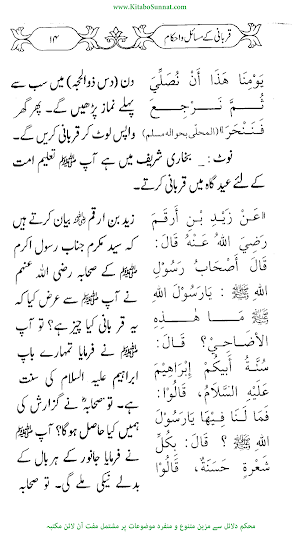 www.KitaboSunnat.com
قربانی کے مسائل و احکام
۱۴
يَوْمِنَا هَذَا أَنْ نُصَلِّيَ
ثُمَّ نَرْجِعَ
فَنَنْحَرَ» (المحلی بحوالہ مسلم)
دن (دس ذوالحجہ) میں سب سے
پہلے نماز پڑھیں گے۔ پھر گھر
واپس لوٹ کر قربانی کریں گے۔
نوٹ :۔ بخاری شریف میں ہے آپ ﷺ تعلیم امت
کے لئے عید گاہ میں قربانی کرتے۔
«عَنْ زَيْدِ بْنِ أَرْقَمَ
رَضِيَ اللهُ عَنْهُ قَالَ:
قَالَ أَصْحَابُ رَسُوْلِ
اللهِ ﷺ : يَارَسُوْلَ اللهِ
ﷺ مَا هٰذِهِ
الْأَضَاحِيُّ؟ قَالَ:
سُنَّةُ أَبِيْكُمْ إِبْرَاهِيْمَ
عَلَيْهِ السَّلَامُ، قَالُوْا:
فَمَا لَنَا فِيْهَا يَارَسُوْلَ
اللهِ ﷺ ؟ قَالَ: بِكُلِّ
شَعْرَةٍ حَسَنَةٌ، قَالُوْا
زید بن ارقم ؓ بیان کرتے ہیں
کہ سید مکرم جناب رسول اکرم
ﷺ کے صحابہ رضی اللہ عنہم
نے آپ ﷺ سے عرض کیا کہ
یہ قربانی کیا چیز ہے؟ تو آپ
ﷺ نے فرمایا تمہارے باپ
ابراہیم علیہ السلام کی سنت
ہے۔ تو صحابہ ؓ نے گزارش کی
ہمیں کیا حاصل ہوگا؟ آپ ﷺ
نے فرمایا جانور کے ہر بال کے
بدلے نیکی ملے گی۔ تو صحابہ
محکم دلائل سے مزین متنوع و منفرد موضوعات پر مشتمل مفت آن لائن مکتبہ